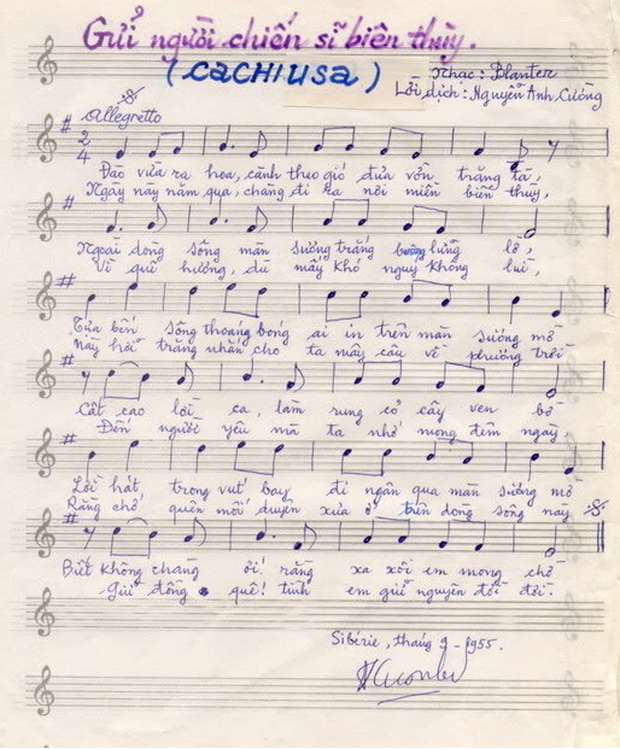 Gửi người chiến sĩ biên thùy.
(CACHIUSA)
Nhạc: Blanter
Lời dịch: Nguyễn Anh Cường
Allegretto
2
4
Đào vừa ra hoa, cành theo gió đưa vờn trăng tà,
Ngày này năm qua, chàng đi ra nơi miền biên thùy,
Ngoài dòng sông màn sương trắng buông lững lờ,
Vì quê hương, dù mấy khó nguy không lui,
Tựa bến sông thoáng bóng ai in trên màn sương mờ
Này hỡi trăng nhắn cho ta mấy câu về phương trời
Cất cao lời ca, làm rung cỏ cây ven bờ
Đến người yêu mà ta nhớ mong đêm ngày,
Lời hát trong vút bay đi ngân qua màn sương mờ
Rằng chớ quên mối duyên xưa ở bên dòng sông này
Biết không chàng ơi! rằng xa xôi em mong chờ
Giữ đồng quê! tình em giữ nguyên đời đời.
Sibérie, tháng 9-1955.